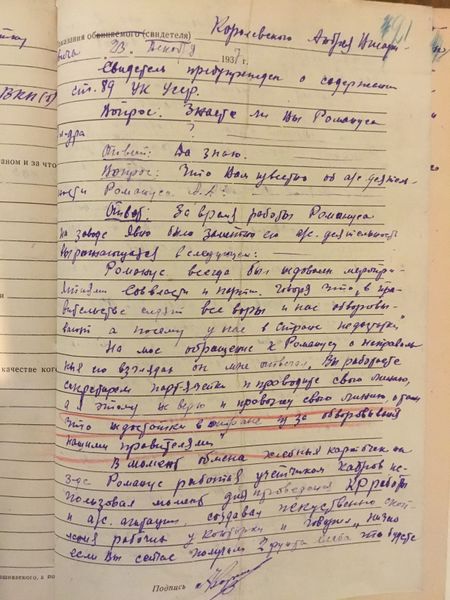 Показания обвиняемого (свидетеля) Королевского Андрея Макаровича
23 декабря 1937 г.
Свидетель предупрежден о содержании
ст. 89 УК УССР.
Вопрос: Знаете ли Вы Романуса
?
Ответ: Да знаю.
Вопрос: Что Вам известно об а/с деятель-
ности Романуса
Ответ: За время работы Романуса
на заводе явно было заметно его а/с. деятельность
выражающаяся в следующем:
Романус всегда был недоволен меропри-
ятиями Соввласти и партии. Говоря что, в пра-
вительстве сидят все воры и нас обворовы-
вают а посему у нас в стране недостатки"
На мое обращение к Романусу о неправиль-
ных его взглядах он мне ответил, Вы работаете
секретарем партячейки и проводите свою линию,
а я этому не верю и провожу свою линию, о том
что недостатки в стране из за обворовывания
нашими правителями"
В момент обмена хлебных карточек на
з-де Романус работая учетчиком кадров ис-
пользовал момент для проведения КР работы
и а/с. агитации, создавал искусственно скоп-
ления рабочих у конторки и говорил,
если Вы сейчас получали 2 фунта хлеба то будете
Подпись
ВКП(б)
аном и за что
качестве ког